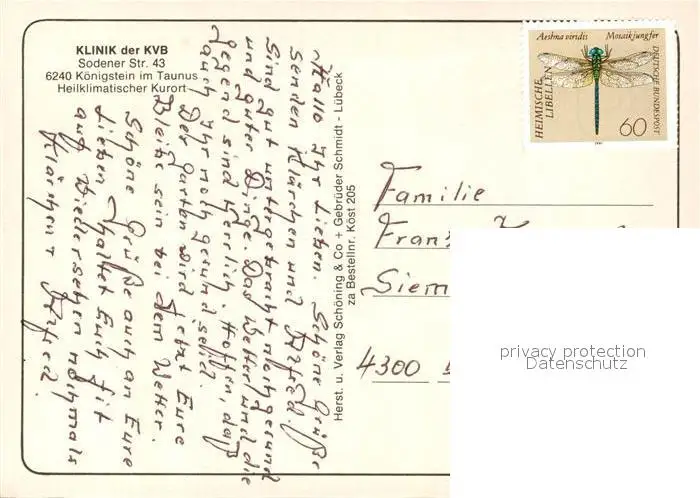 KLINIK der KVB
Sodener Str. 43
6240 Königstein im Taunus
Heilklimatischer Kurort
Hallo Ihr Lieben. Schöne Grüße
senden Klärchen und Alfred.
Sind gut untergebracht noch gesund
und guter Dinge. Das Wetter und die
Gegend sind herrlich. Hoffen, daß
auch Ihr noch gesund seid.
Der Garten wird jetzt Eure
Bleibe sein bei dem Wetter.
Schöne Grüße auch an Eure
Lieben haltet Euch fit
auf Wiedersehen nochmals
Klärchen + Alfred.
Herst. u. Verlag Schöning & Co + Gebrüder Schmidt - Lübeck
za Bestellnr. Köst 205
Aeshna viridis Mosaikjungfer
HEIMISCHE
LIBELLEN
DEUTSCHE BUNDESPOST
60
Familie
Franz
Siem
4300
privacy protection
Datenschutz